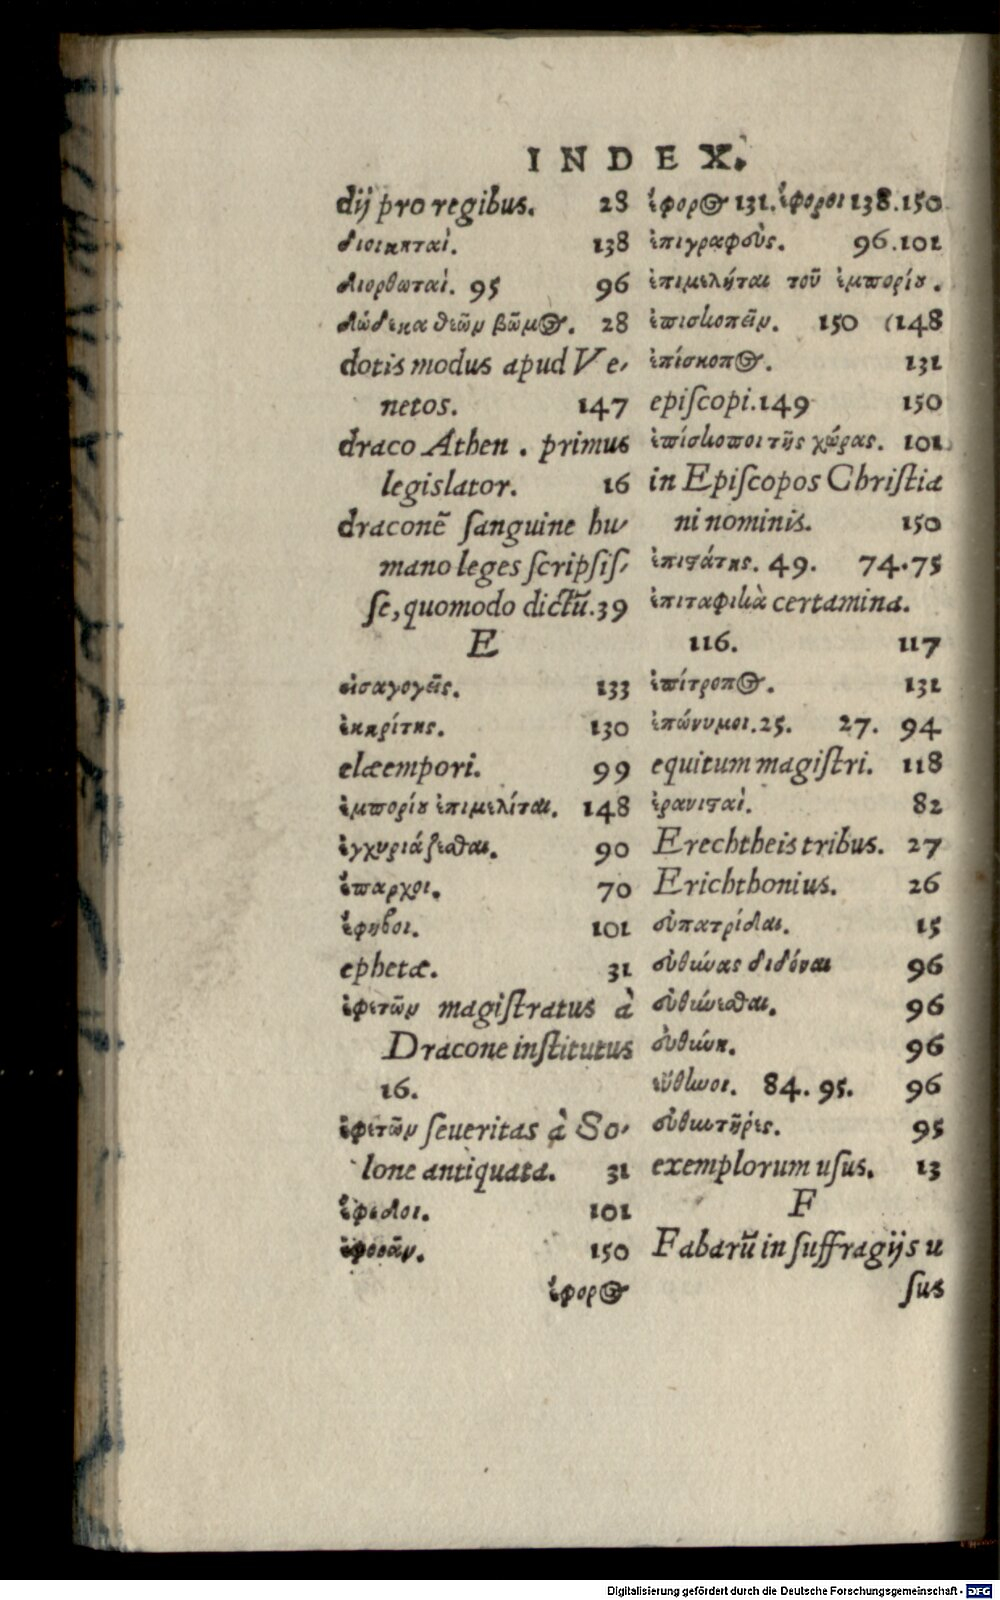 INDEX.
dij pro regibus. 28
διοικηταὶ. 138
διορθωταὶ. 95 96
δώδεκα θεῶν βῶμος. 28
dotis modus apud Ve-
netos. 147
draco Athen. primus
legislator. 16
draconē ſanguine hu-
mano leges ſcripſiſ-
ſe, quomodo dictū. 39
E
εἰσαγογεῖς. 133
ἐκκρίτης. 130
elæempori. 99
ἐμπορίου ἐπιμελίται. 148
ἐγχυριάζεσθαι. 90
ἔπαρχοι. 70
ἔφηβοι. 101
ephetæ. 31
ἐφετῶν magiſtratus à
Dracone inſtitutus
16.
ἐφετῶν ſeueritas à So-
lone antiquata. 31
ἔφεδοι. 101
ἐφορᾶν. 150
ἔφορος
ἔφορος 131. ἔφοροι 138.150
ἐπιγραφεὺς. 96.101
ἐπιμελήται τοῦ ἐμπορίου.
ἐπισκοπεῖν. 150 (148
ἐπίσκοπος. 131
epiſcopi. 149 150
ἐπίσκοποι τῆς χώρας. 101
in Epiſcopos Chriſtia
ni nominis. 150
ἐπιστάτης. 49. 74.75
ἐπιταφικὰ certamina.
116. 117
ἐπίτροπος. 131
ἐπώνυμοι. 25. 27. 94
equitum magiſtri. 118
ἐρανισταὶ. 82
Erechtheis tribus. 27
Erichthonius. 26
εὐπατρίδαι. 15
εὐθύνας διδόναι 96
εὐθύνεσθαι. 96
εὐθύνη. 96
εὔθυνοι. 84. 95. 96
εὐθυντῆρες. 95
exemplorum uſus. 13
F
Fabarū in ſuffragijs u
ſus
Digitalisierung gefördert durch die Deutsche Forschungsgemeinschaft - DFG